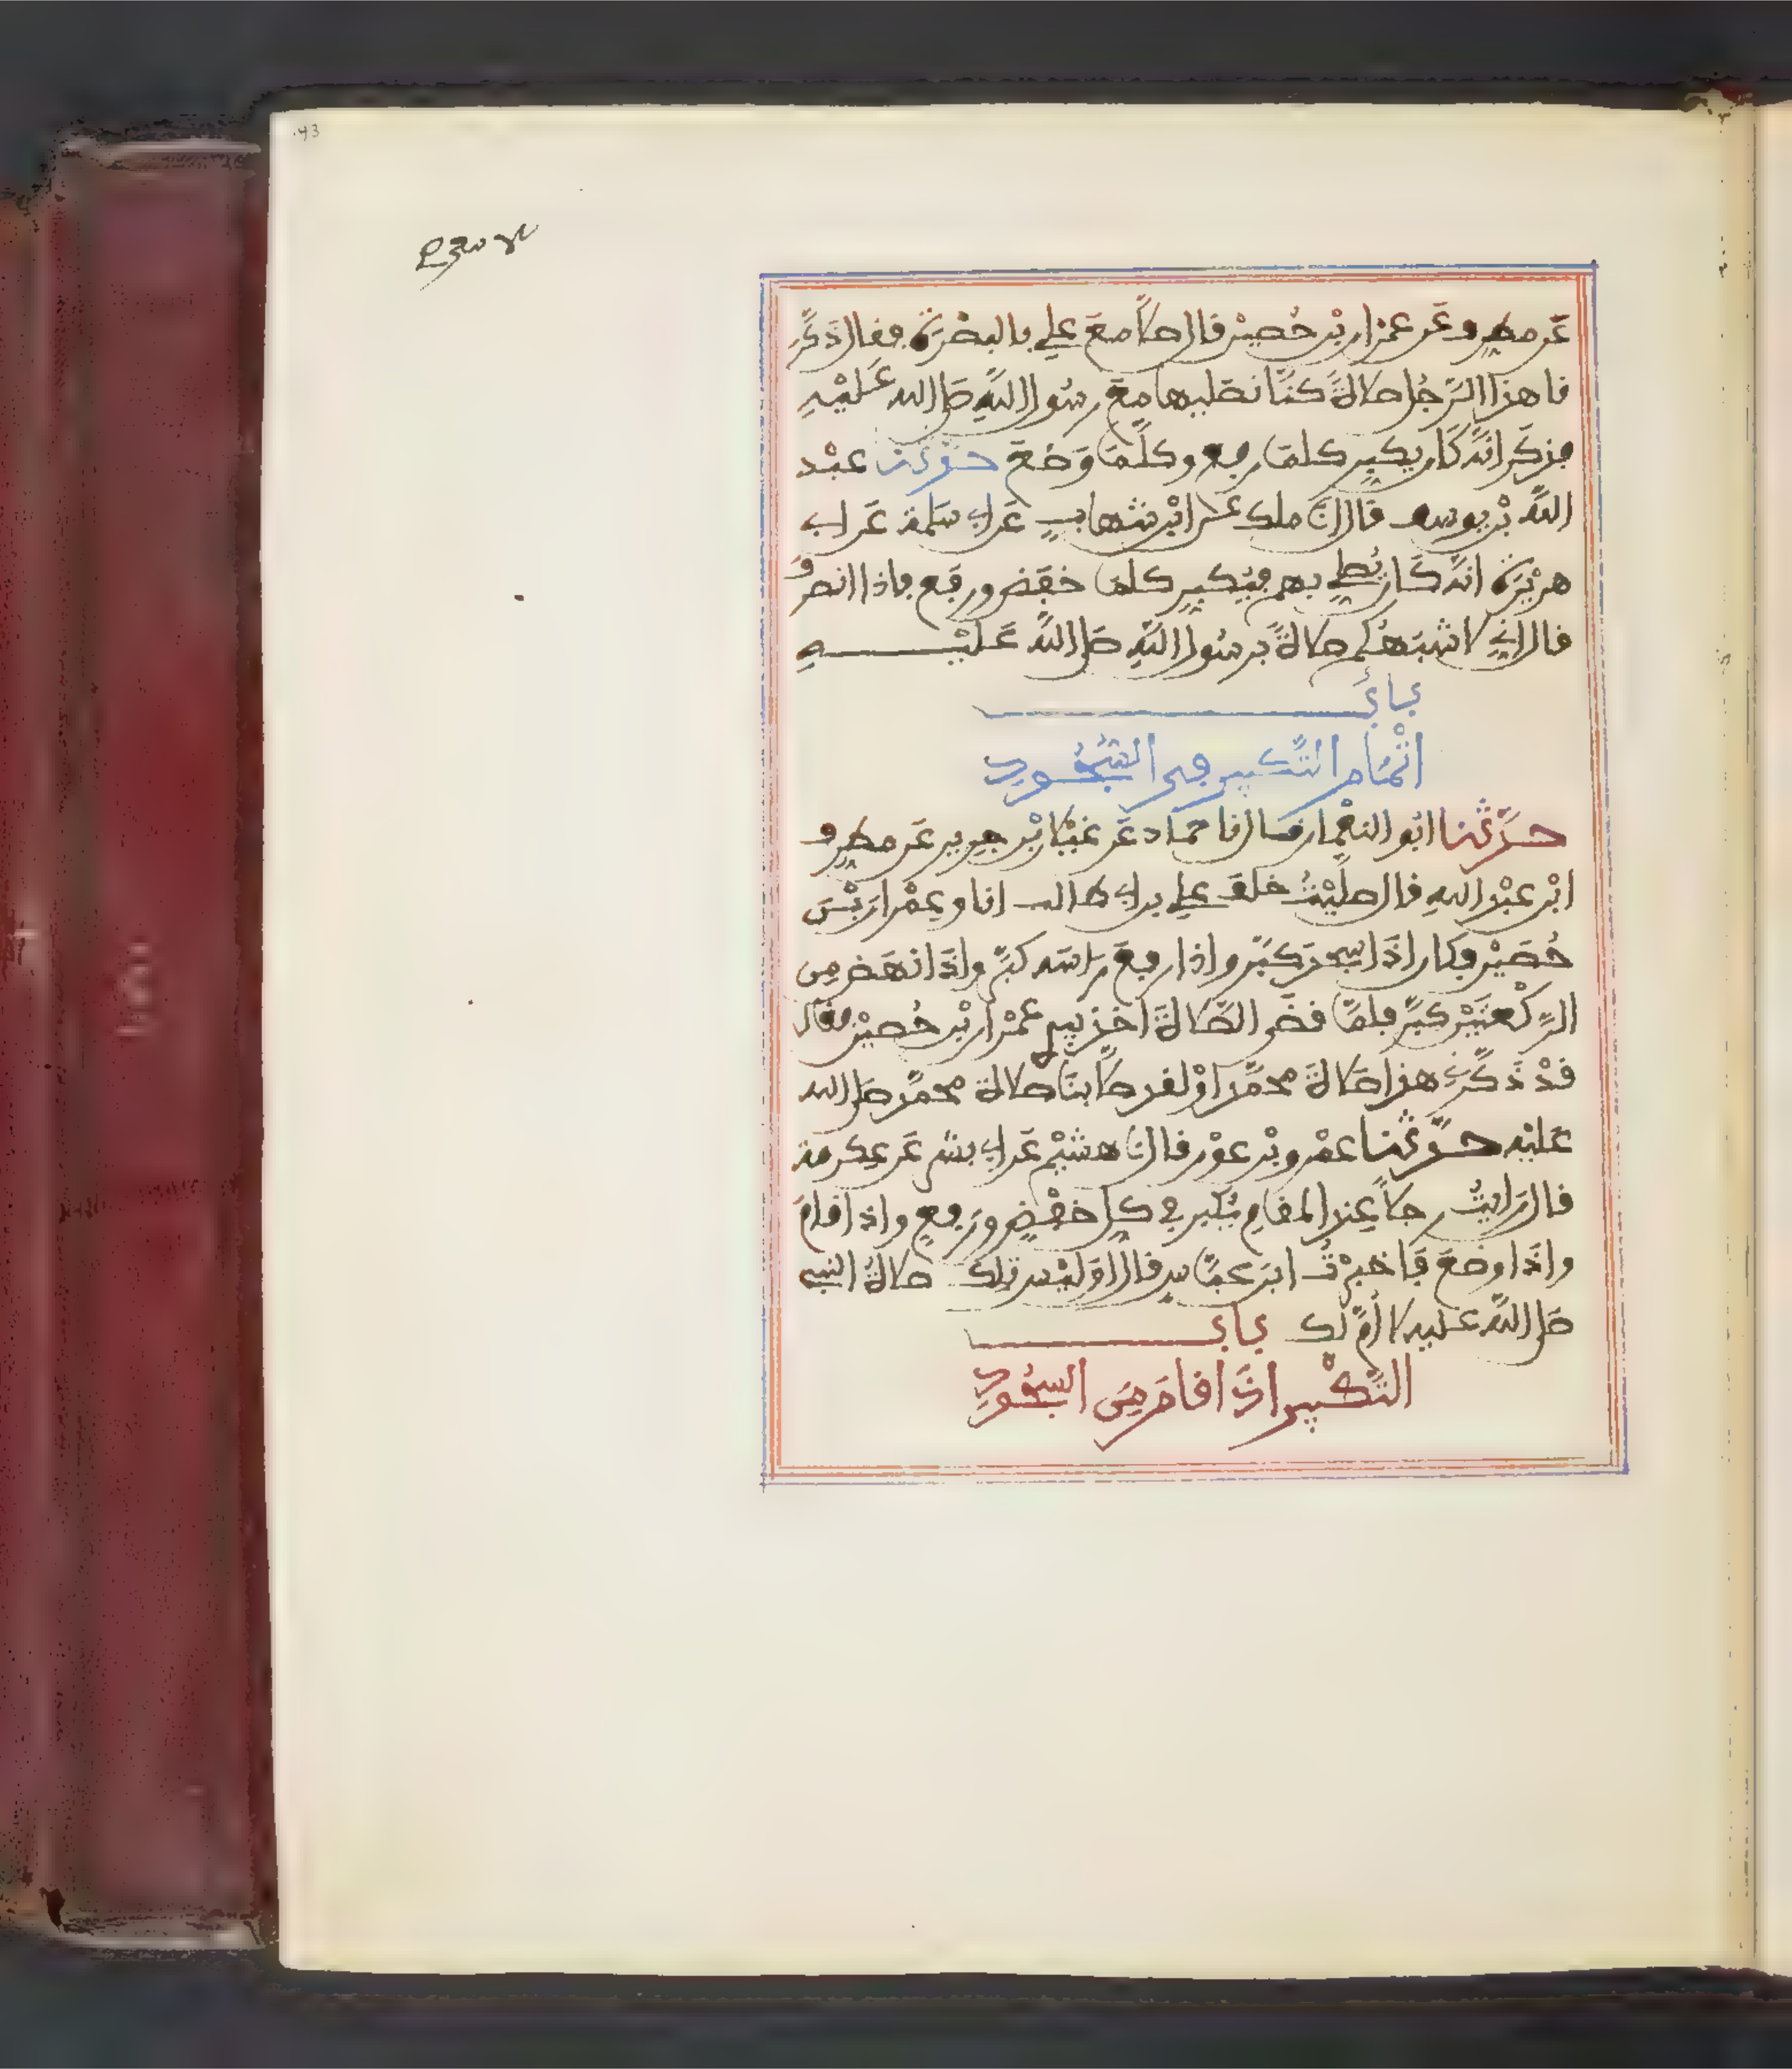 عَن مطرِف عَن عمران بْن حُصيْن قال صلَّا مَعَ علِي بالبصْرَة فقال ذكَّرَ
نا هذا الرَّجُل صلاةً كنَّا نصَليها مَعَ رسُول اللَّهِ صَلى الله عَليْهِ
فذكَر انَّه كَان يكبِر كلمَا رفع وكلَّمَا وَضَعَ حدثنا عبْد
اللَّه بْن يوسف قال انَا ملك عن ابْن شهابٍ عَن ابِي سَلمة عَن ابِي
هريْرَة انَّه كَان يُصلِي بهم فيُكبِر كلمَا خفَض ورفَع فاذا انصرَف
قال انِّي لاشبَهُكم صلاةً برسُول اللَّهِ صَلى اللَّه عَليْهِ
بابُ
اتْمَام التَّكبير في السُّجُودِ
حدَّثنا ابُو النعْمان قال نا حماد عَن غيْلان بْن جرير عَن مطرِف
ابْن عبْد اللهِ قال صليْتُ خلفَ علِي بن ابِي طالب انا وعِمْران بْن
حُصَيْن فكان اذَا سجدَ كبَّر واذا رفعَ رَاسَه كبَّر واذَا نهَضَ مِن
الرَّكْعتَيْن كبَّر فلمَّا قضَى الصَّلاةَ اخذ بيدِي عمْران بْن حُصيْن فقال
قدْ ذَكَّرَنِي هذا صَلاةَ محمَّد اوْ لقد صلَّا بنَا صلاة محمَّد صَلى الله
عَليْه حدَّثنا عمْرو بْن عوْن قال نَا هشيْم عَن ابِي بشر عَن عِكرمة
قال رَايتُ رجلاً عِند المقامِ يُكبر في كلِ خفْضٍ ورَفعٍ واذا قامَ
واذَا وضَعَ فَاخبرْتُ ابنَ عبَّاسٍ قال اوَليْسَ تلك صلاةُ النبي
صَلى اللَّه عَليه لا أُمَّ لَك بابُ
التَّكْبير اذَا قامَ مِنَ السجُودِ